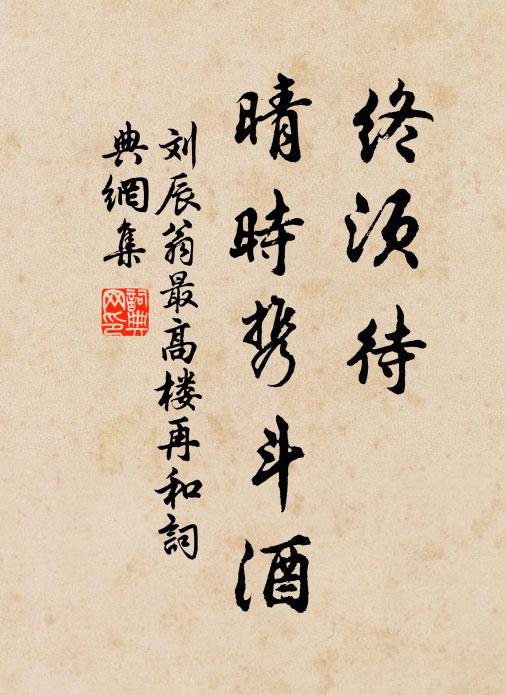 终须待
晴時携斗酒
刘辰翁最高楼再和詞
典網集
詞典网印